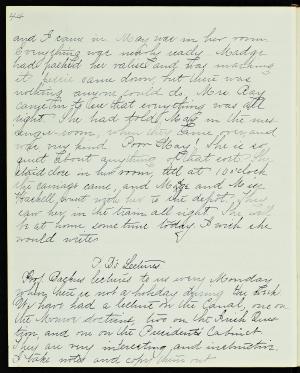 44
and I came in May was in her room
Everything was nearly ready Madge
had packed her valises and was washing
it. came down but there was
nothing anyone could do, Mrs Ray
came in to see that everything was all
right. She had told May in the mes-
senger-room, when they came over, and
was very kind Poor May! She is so
quiet about anything of that sort. She
staid alone in her room, till at 10 o'clock
the carriage came, and Madge and Miss
Haskell, went with her to the depot, They
saw her in the train all right. She will
be at home some time today I wish she
would write.
Lectures
Prof. lectures to us every Monday
when there is not a holiday during the
We have had a lecture on the Canal, one on
the Monroe doctrine, two on the Ques-
tion, and one on the President's Cabinet
They are very interesting and instructive.
I take notes and copy them out